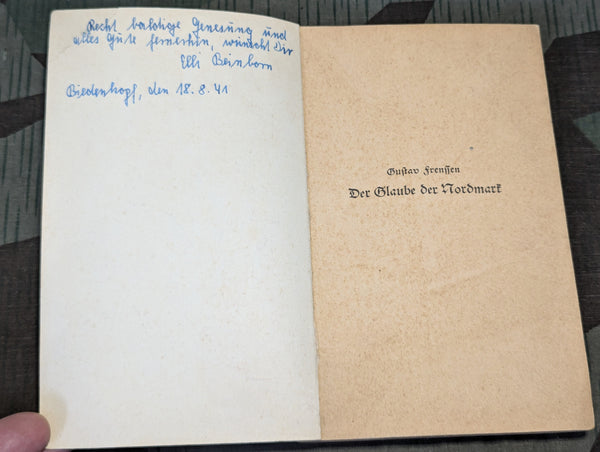 Recht baldige Genesung und
alles Gute fernerhin, wünscht Dir
Elli Beinborn
Biedenkopf, den 18.8.41
Gustav Frenssen
Der Glaube der Nordmark